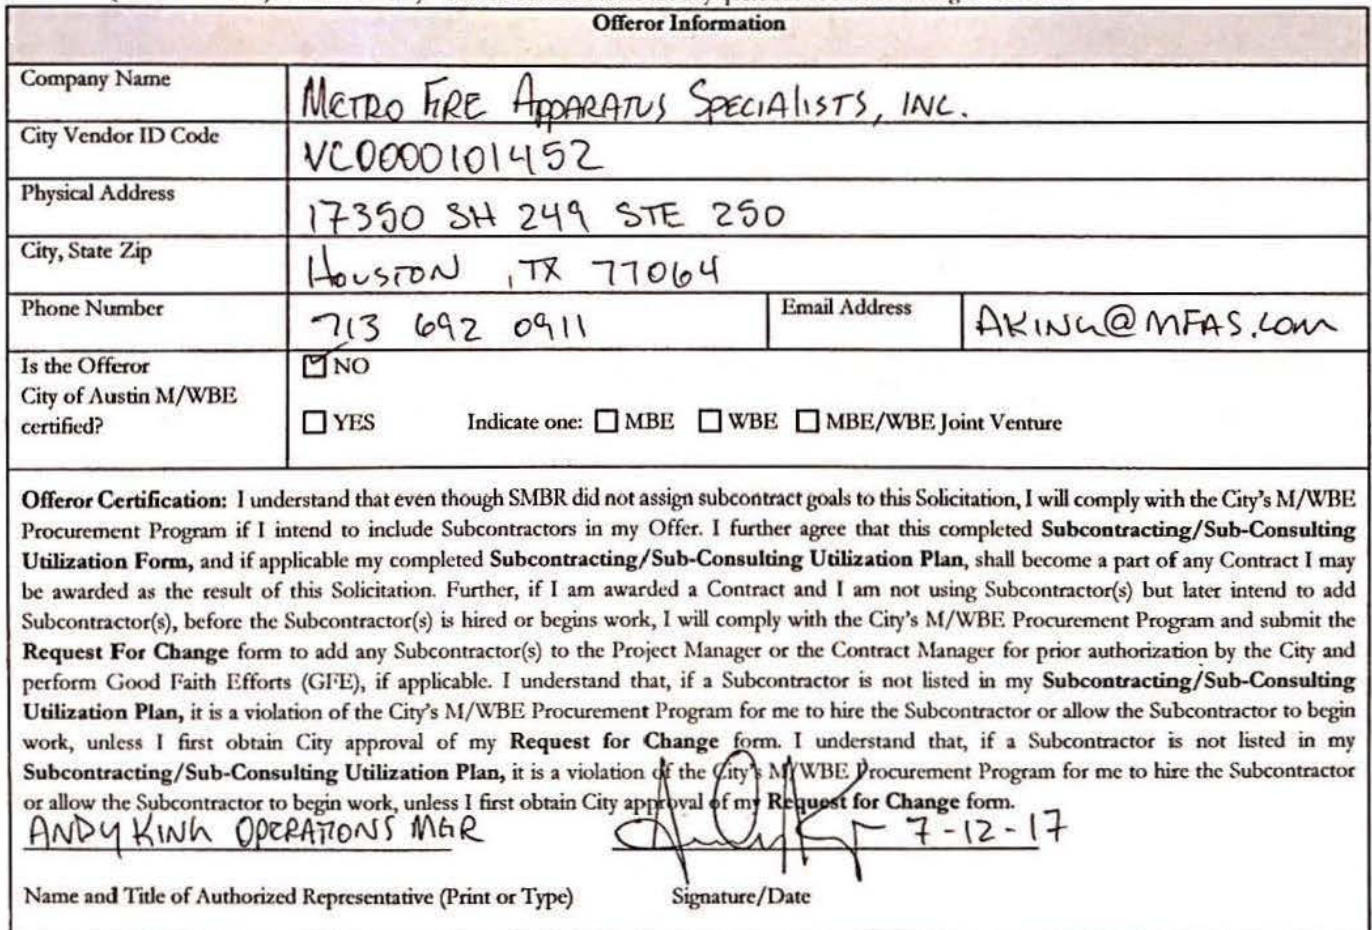 Offeror Information
Company Name METRO FIRE APPARATUS SPECIALISTS, INC.
City Vendor ID Code VC0000101452
Physical Address 17350 SH 249 STE 250
City, State Zip HOUSTON, TX 77064
Phone Number 713 692 0911 Email Address AKING@MFAS.com
Is the Offeror NO
City of Austin M/WBE
certified? YES Indicate one: MBE WBE MBE/WBE Joint Venture
Offeror Certification: I understand that even though SMBR did not assign subcontract goals to this Solicitation, I will comply with the City's M/WBE
Procurement Program if I intend to include Subcontractors in my Offer. I further agree that this completed Subcontracting/Sub-Consulting
Utilization Form, and if applicable my completed Subcontracting/Sub-Consulting Utilization Plan, shall become a part of any Contract I may
be awarded as the result of this Solicitation. Further, if I am awarded a Contract and I am not using Subcontractor(s) but later intend to add
Subcontractor(s), before the Subcontractor(s) is hired or begins work, I will comply with the City's M/WBE Procurement Program and submit the
Request For Change form to add any Subcontractor(s) to the Project Manager or the Contract Manager for prior authorization by the City and
perform Good Faith Efforts (GFE), if applicable. I understand that, if a Subcontractor is not listed in my Subcontracting/Sub-Consulting
Utilization Plan, it is a violation of the City's M/WBE Procurement Program for me to hire the Subcontractor or allow the Subcontractor to begin
work, unless I first obtain City approval of my Request for Change form. I understand that, if a Subcontractor is not listed in my
Subcontracting/Sub-Consulting Utilization Plan, it is a violation of the City's M/WBE Procurement Program for me to hire the Subcontractor
or allow the Subcontractor to begin work, unless I first obtain City approval of my Request for Change form.
ANDY KING OPERATIONS MGR 7-12-17
Name and Title of Authorized Representative (Print or Type) Signature/Date